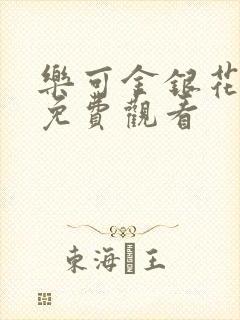 樂可金銀花
免費觀看
東海王